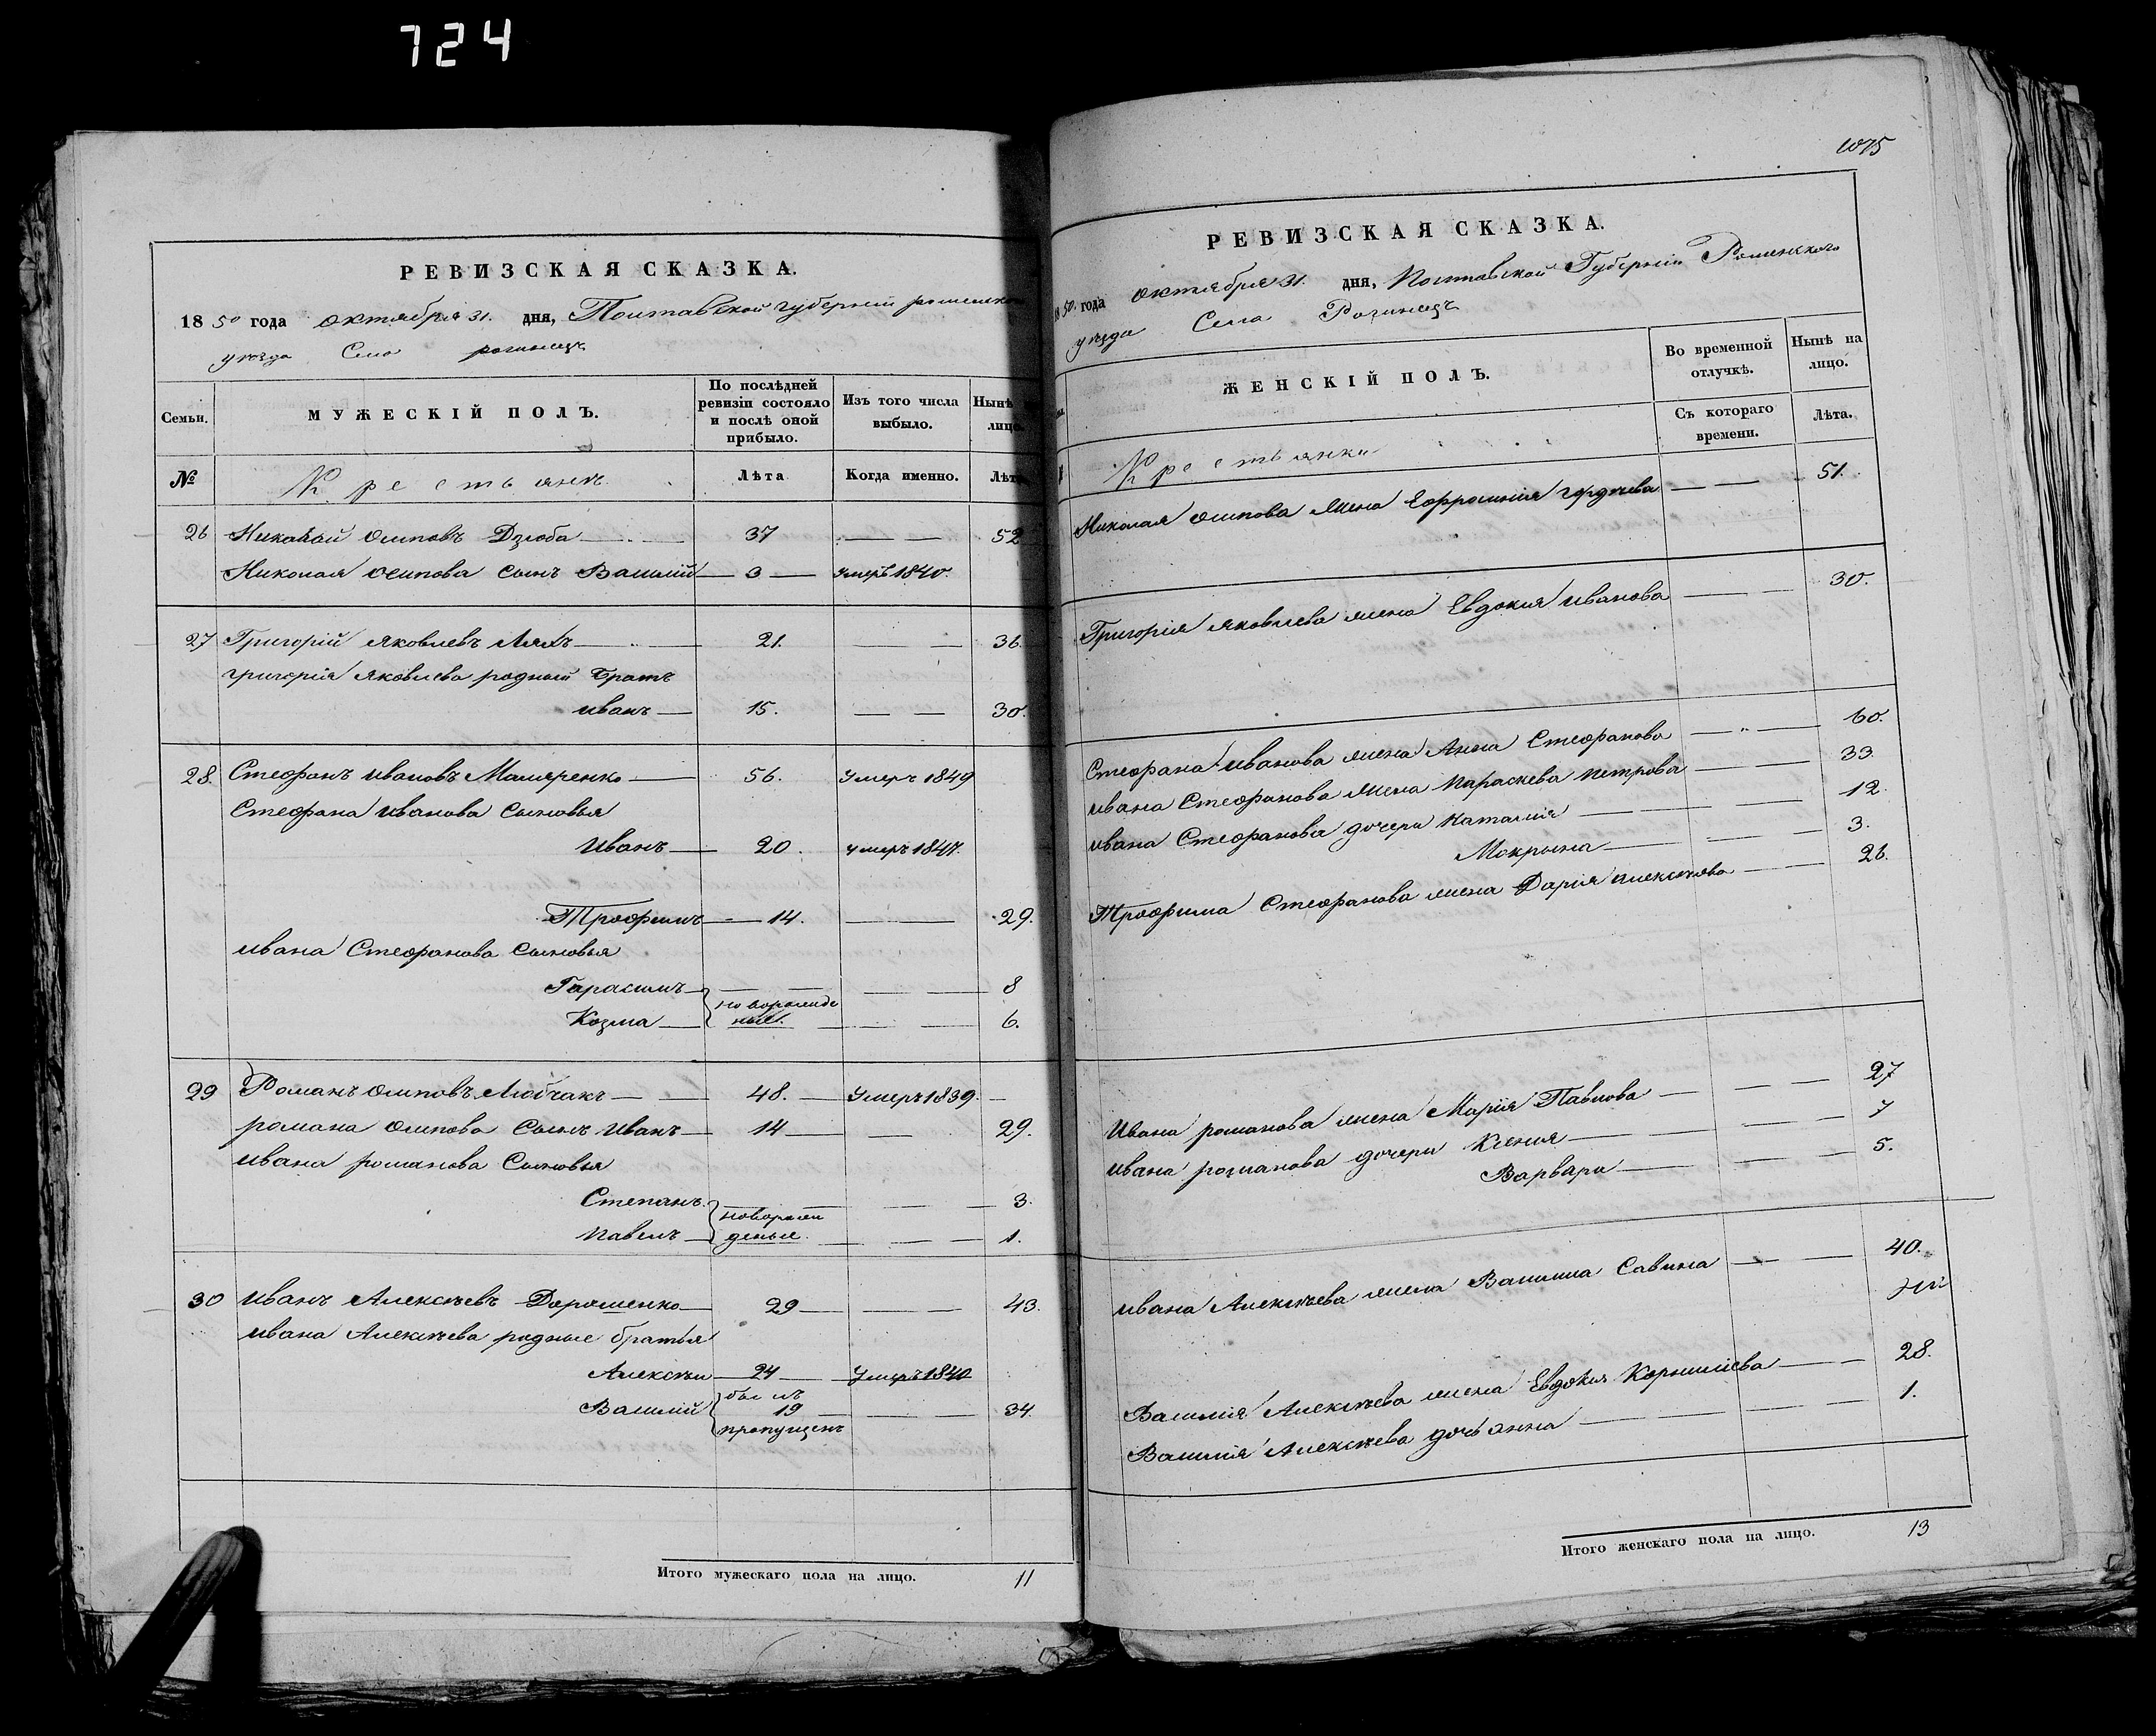 724
РЕВИЗСКАЯ СКАЗКА.
1850 года октября 31. дня, Полтавской губерніи роменского
уезда Села рогинецъ
Семьи.
МУЖЕСКІЙ ПОЛЪ.
По послѣдней ревизіи состояло и послѣ оной прибыло.
Изъ того числа выбыло.
Нынѣ лицо.
№
Крестьянъ
Лѣта
Когда именно.
Лѣта
26 Николай Осиповъ Дзюба 37 52
Николая Осипова Сынъ Василій 3 Умеръ 1840.
27 Григорій Яковлевъ Ляхъ 21. 36.
григорія Яковлева родный братъ
иванъ 15. 30.
28. Стефанъ ивановъ 56. Умеръ 1849
Стефана иванова Сыновья
Иванъ 20. умеръ 1847.
Трофимъ 14. 29.
ивана Стефанова Сыновья
Гарасимъ 8
Козма новорожде 6.
ные.
29 Романъ Осиповъ Любчакъ 48. Умеръ 1839.
романа Осипова Сынъ иванъ 14 29.
ивана романова Сыновья
Степанъ 3.
новорож
Павелъ деные. 1.
30 иванъ Алексѣевъ Дорошенко 29 43.
ивана Алексѣева родные братья
Алексѣи 24 Умеръ 1840
былъ
Василій 19 34.
пропущенъ
Итого мужескаго пола на лицо. 11
1075
РЕВИЗСКАЯ СКАЗКА.
1850. года октября 31. дня, Полтавской Губерніи Роменского
уезда Села Рогинецъ
ЖЕНСКІЙ ПОЛЪ.
Во временной отлучкѣ.
Нынѣ на лицо.
Съ котораго времени.
Лѣта.
Крестьянки
Николая Осипова жена Ефросинія гордѣева 51.
Григорія Яковлева жена Евдокия иванова 30.
Стефана иванова жена Анна Стефанова 60.
ивана Стефанова жена Параскева петрова 33.
ивана Стефанова дочери Наталия 12.
Мокрына 3.
Трофима Стефанова жена Дария алексѣева 26.
Ивана романова жена Мария Павлова 27
ивана романова дочери Ксения 7
Варвара 5.
ивана Алексѣева жена Василиса Савина 40.
Василия Алексѣева жена Евдокия Корнилиева 28.
Василия Алексѣева дочь анна 1.
Итого женскаго пола на лицо. 13